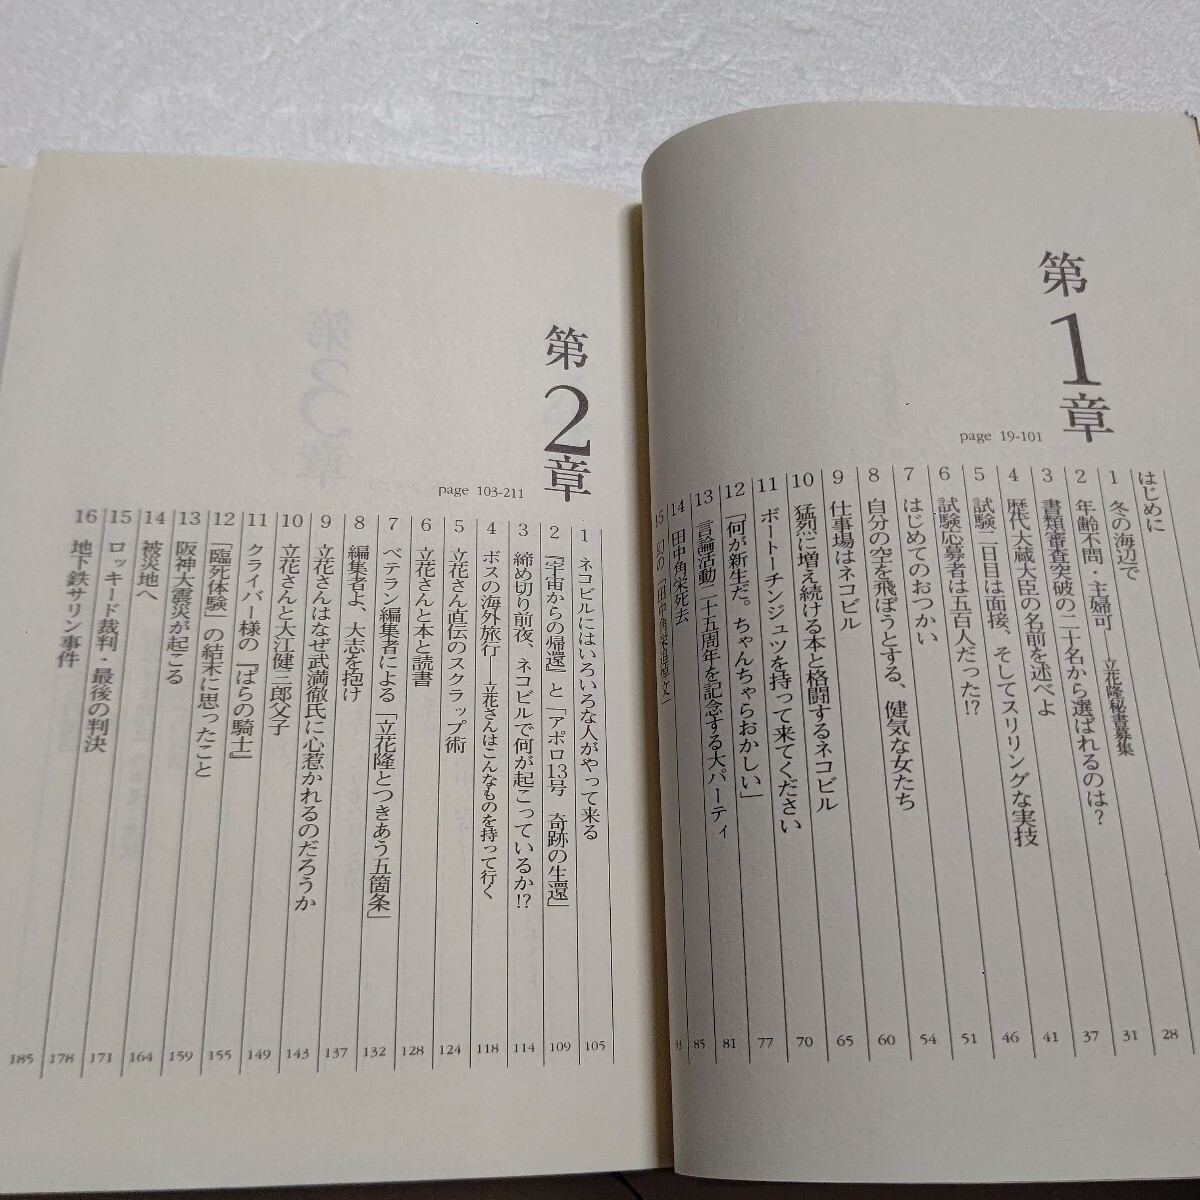 第1章
page 19-101
はじめに
1 冬の海辺で 28
2 年齢不問・主婦可 立花隆秘書募集 31
3 書類審査突破の二十名から選ばれるのは? 37
4 歴代大蔵大臣の名前を述べよ 41
5 試験二日目は面接、そしてスリリングな実技 46
6 試験応募者は五百人だった!? 51
7 はじめてのおつかい 54
8 自分の空を飛ぼうとする、健気な女たち 60
9 仕事場はネコビル 65
10 猛烈に増え続ける本と格闘するネコビル 70
11 ポートーチンジュツを持って来てください 77
12 「何が新生だ。ちゃんちゃらおかしい」 81
13 言論活動二十五周年を記念する大パーティ 85
14 田中角栄死去
15 幻の「田中角栄追悼文」
第2章
page 103-211
1 ネコビルにはいろいろな人がやって来る 105
2 『宇宙からの帰還』と「アポロ13号 奇跡の生還」 109
3 締め切り前夜、ネコビルで何が起こっているか!? 114
4 ボスの海外旅行――立花さんはこんなものを持って行く 118
5 立花さん直伝のスクラップ術 124
6 立花さんと本と読書 128
7 ベテラン編集者による「立花隆とつきあう五箇条」 132
8 編集者よ、大志を抱け 137
9 立花さんはなぜ武満徹氏に心惹かれるのだろうか 143
10 立花さんと大江健三郎父子 149
11 クライバー様の『ばらの騎士』 155
12 「臨死体験」の結末に思ったこと 159
13 阪神大震災が起こる 164
14 被災地へ 171
15 ロッキード裁判・最後の判決 178
16 地下鉄サリン事件 185